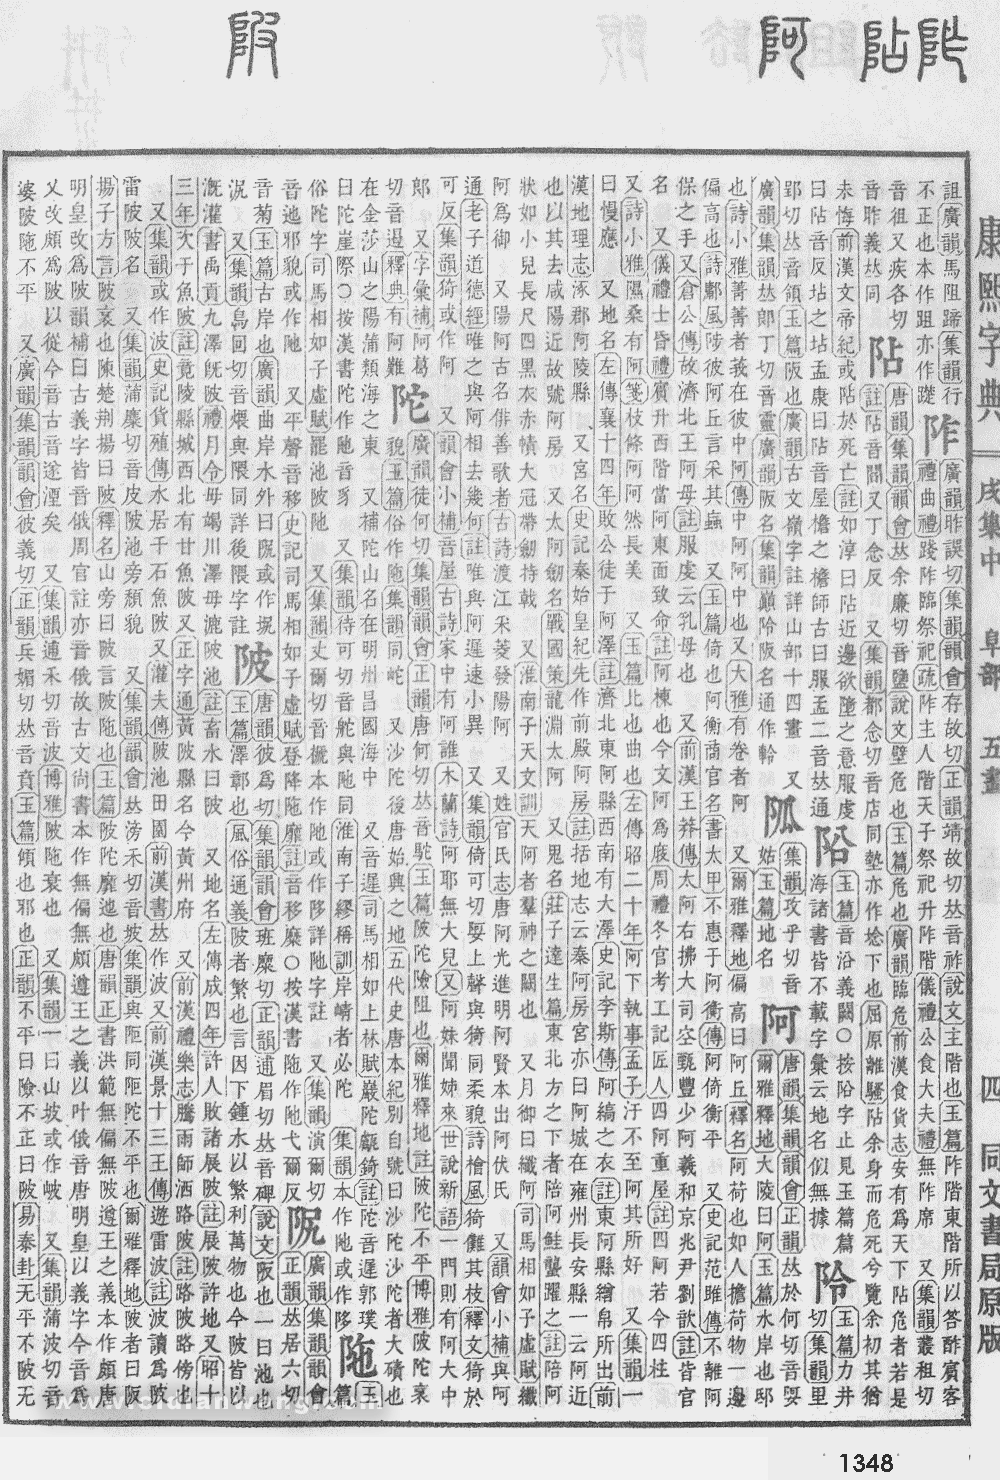 康熙字典 戌集中 阜部 五畫 四 同文書局原版
詛廣韻馬阻蹄集韻行
不正也本作跙亦作
阼
廣韻昨誤切集韻韻會存故切正韻靖故切𠀤音祚說文主階也玉篇阼階東階所以答酢賓客
禮曲禮踐阼臨祭祀疏阼主人階天子祭祀升阼階儀禮公食大夫禮無阼席 又集韻叢租切
音徂又疾各切
音昨義𠀤同
阽
唐韻集韻韻會𠀤余廉切音鹽說文壁危也玉篇危也廣韻臨危前漢食貨志安有爲天下阽危者若是
註阽音閻又丁念反 又集韻都念切音店同墊亦作埝下也屈原離騷阽余身而危死兮覽余初其猶
未悔前漢文帝紀或阽於死亡註如淳曰阽近邊欲墮之意服虔
曰阽音反坫之坫孟康曰阽音屋檐之檐師古曰服孟二音𠀤通
㕣
玉篇音沿義闕○按㕣字止見玉篇篇
海諸書皆不載字彙云地名似無據
阾
玉篇力井
切集韻里
郢切𠀤音領玉篇阪也廣韻古文嶺字註詳山部十四畫 又
廣韻集韻𠀤郎丁切音靈廣韻阪名集韻巔阾阪名通作軨
㧓
集韻攻乎切音
姑玉篇地名
阿
唐韻集韻韻會正韻𠀤於何切音娿
爾雅釋地大陵曰阿玉篇水岸也邸
也詩小雅菁菁者莪在彼中阿傳中阿阿中也又大雅有卷者阿 又爾雅釋地偏高曰阿丘釋名阿荷也如人擔荷物一邊
偏高也詩鄘風陟彼阿丘言采其蝱 又玉篇倚也阿衡商官名書太甲不惠于阿衡傳阿倚衡平 又史記范雎傳不離阿
保之手又倉公傳故濟北王阿母註服虔云乳母也 又前漢王莽傳太阿右拂大司空甄豐少阿羲和京兆尹劉歆註皆官
名又儀禮士昏禮賓升西階當阿東面致命註阿棟也今文阿爲庪周禮冬官考工記匠人四阿重屋註四阿若今四柱
又詩小雅隰桑有阿箋枝條阿阿然長美 又玉篇北也曲也左傳昭二十年阿下執事孟子汙不至阿其所好 又集韻一
曰慢應 又地名左傳襄十四年敗公徒于阿澤註濟北東阿縣西南有大澤史記李斯傳阿縞之衣註東阿縣繒帛所出前
漢地理志涿郡阿陵縣 又宮名史記秦始皇紀先作前殿阿房註括地志云秦阿房宮亦曰阿城在雍州長安縣一云阿近
也以其去咸陽近故號阿房 又太阿劒名戰國策龍淵太阿 又鬼名莊子達生篇東北方之下者陪阿鮭蠪躍之註陪阿
狀如小兒長尺四黑衣赤幘大冠帶劒持戟 又淮南子天文訓天阿者羣神之闕也 又月御曰纖阿司馬相如子虛賦纖
阿爲御 又陽阿古名俳善歌者古詩渡江采菱發陽阿 又姓官氏志唐阿光進明阿賢本出阿伏氏 又韻會小補與阿
通老子道德經唯之與阿相去幾何註唯與阿遲速小異 又集韻倚可切娿上聲與猗同柔貌詩檜風猗儺其枝釋文猗於
可反集韻猗或作阿 又韻會小補音屋古詩家中有阿誰木蘭詩阿耶無大兒又阿妹聞姊來世說新語一門則有阿大中
郎 又字彙補阿葛
切音遏釋典有阿難
陀
廣韻徒何切集韻韻會正韻唐何切𠀤音駝玉篇陂陀險阻也爾雅釋地註陂陀不平博雅陂陀衺
貌玉篇俗作陁集韻同岮 又沙陀後唐始興之地五代史唐本紀別自號曰沙陀沙陀者大磧也
在金莎山之陽蒲類海之東 又補陀山名在明州昌國海中 又音遲司馬相如上林賦巖陀甗錡註陀音遲郭璞
曰陀崖際○按漢書陀作阤音豸 又集韻待可切音舵與阤同淮南子繆稱訓岸崝者必陀 集韻本作阤或作陊
陁
玉
篇
俗陀字司馬相如子虛賦罷池陂陁 又集韻丈爾切音褫本作阤或作陊詳阤字註 又集韻演爾切
音迆邪貌或作阤 又平聲音移史記司馬相如子虛賦登降陁靡註音移糜○按漢書陁作阤弋爾反
阸
廣韻集韻韻會
正韻𠀤居六切
音菊玉篇古岸也廣韻曲岸水外曰阸或作坭
況 又集韻烏回切音煨與隈同詳後隈字註
陂
唐韻彼爲切集韻韻會班糜切正韻逋眉切𠀤音碑說文阪也一曰池也
玉篇澤鄣也風俗通義陂者繁也言因下鍾水以繁利萬物也今陂皆以
漑灌書禹貢九澤旣陂禮月令毋竭川澤毋漉陂池註畜水曰陂 又地名左傳成四年許人敗諸展陂註展陂許地又昭十
三年次于魚陂註竟陵縣城西北有甘魚陂又正字通黃陂縣名今黃州府 又前漢禮樂志騰雨師洒路陂註路陂路傍也
又集韻或作波史記貨殖傳水居千石魚陂又灌夫傳陂池田園前漢書𠀤作波又前漢景十三王傳遊雷波註波讀爲陂
雷陂陂名 又集韻蒲麋切音皮陂池旁頹貌 又集韻韻會𠀤滂禾切音坡集韻與阪同阪陀不平也爾雅釋地陂者曰阪
揚子方言陂衺也陳楚荆揚曰陂釋名山旁曰陂言陂陁也玉篇陂陀靡迆也唐韻正書洪範無偏無陂遵王之義本作頗唐
明皇改爲陂韻補曰古義字皆音俄周官註亦音俄故古文尚書本作無偏無頗遵王之義以叶俄音唐明皇以義字今音爲
乂改頗爲陂以從今音古音遂湮矣 又集韻逋禾切音波博雅陂陁衺也 又集韻一曰山坡或作岥 又集韻蒲波切音
婆陂陁不平 又廣韻集韻韻會彼義切正韻兵媚切𠀤音賁玉篇傾也邪也正韻不平曰險不正曰陂易泰卦无平不陂无
www.cidianwang.com
1348